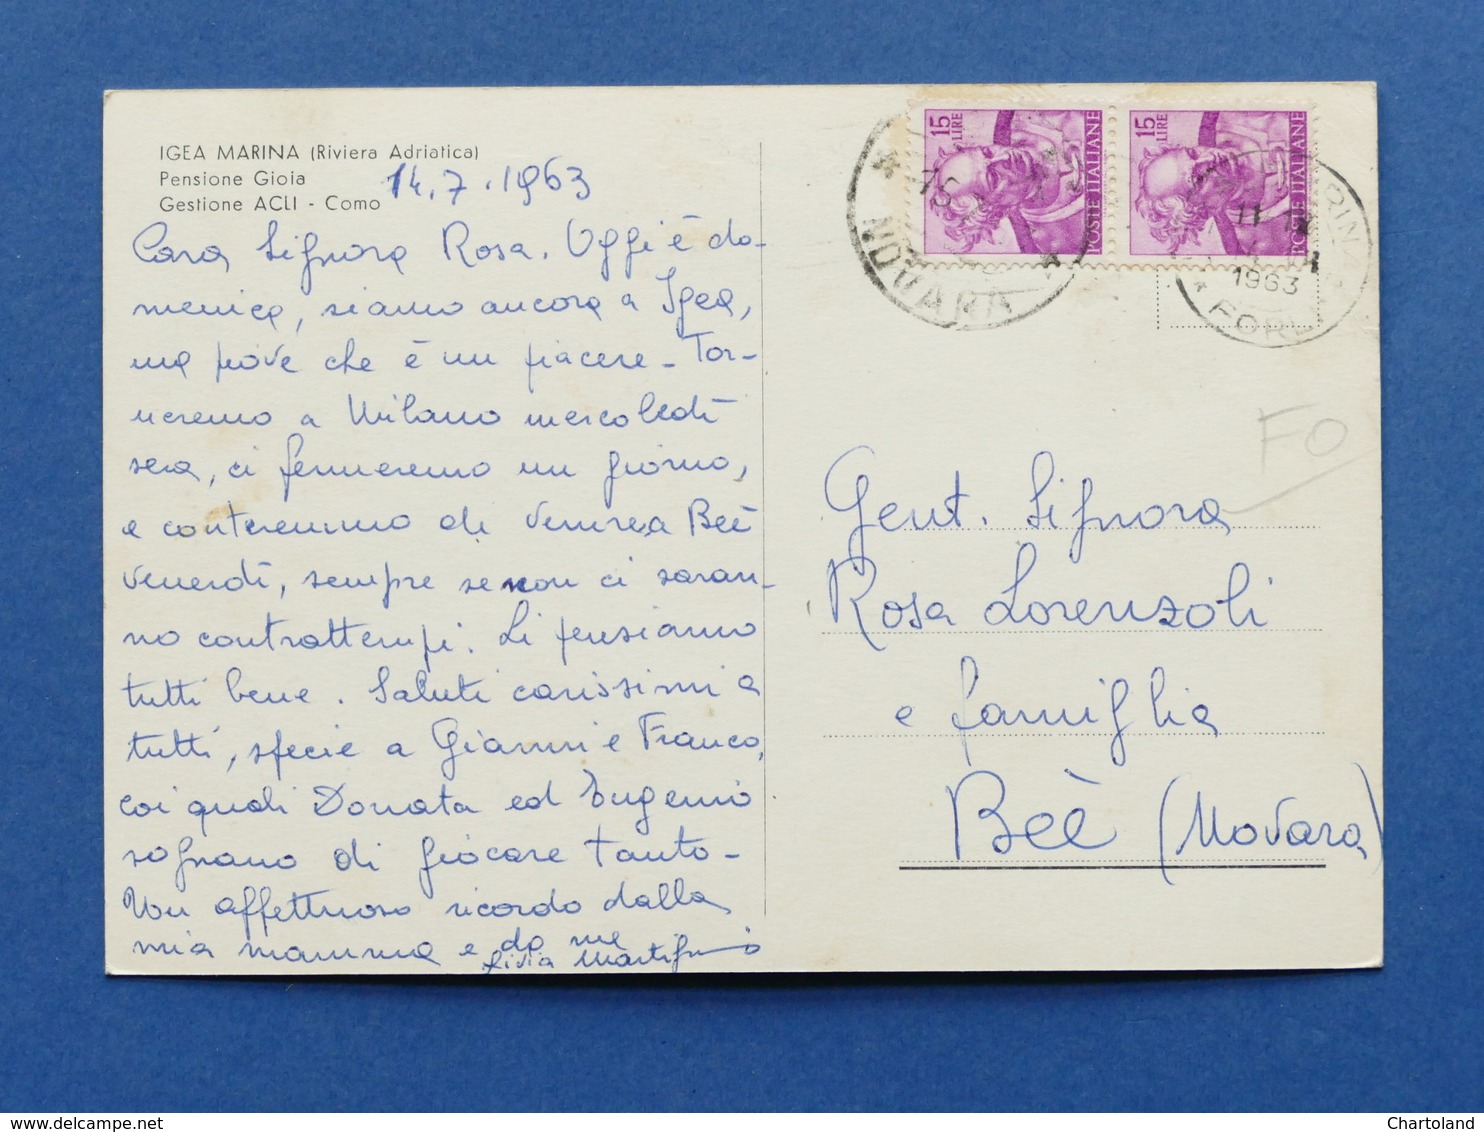 IGEA MARINA (Riviera Adriatica)
Pensione Gioia
Gestione ACLI - Como
14.7.1963
Cara Signora Rosa. Oggi è do-
menica, siamo ancora a Igea,
ma piove che è un piacere - Tor-
neremo a Milano mercoledì
sera, ci fermeremo un giorno,
e conteremmo di venire a Beè
venerdì, sempre se non ci saran-
no contrattempi. Li pensiamo
tutti bene. Saluti carissimi a
tutti, specie a Gianni e Franco,
coi quali Donata ed Eugenio
sognano di giocare tanto -
Un affettuoso ricordo dalla
mia mamma e da me
Livia
15 LIRE
POSTE ITALIANE
15 LIRE
POSTE ITALIANE
NOVARA
1963
FORLI
FO
Gent. Signora
Rosa Lorenzoli
e famiglia
Beè (Novara)
Chartoland